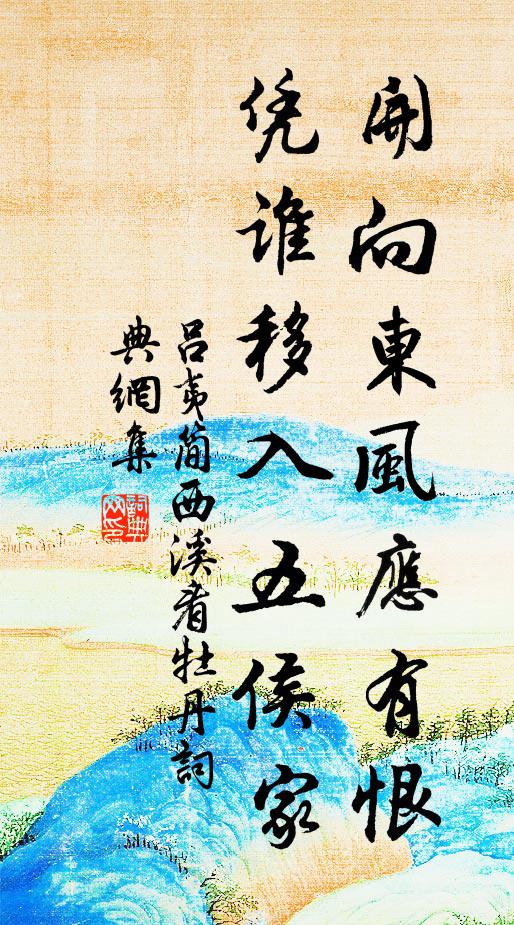 開向東風應有恨
凭誰移入五侯家
呂夷簡西溪看牡丹詞
典網集
詞典网印